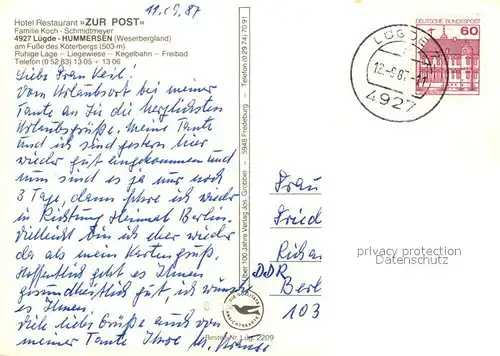 11.09.87
Hotel Restaurant »ZUR POST«
Familie Koch · Schmidtmeyer
4927 Lügde - HUMMERSEN (Weserbergland)
am Fuße des Köterbergs (503 m)
Ruhige Lage – Liegewiese – Kegelbahn – Freibad
Telefon (0 52 83) 13 05 + 13 06
Liebe Frau Keil!
Vom Urlaubsort bei meiner
Tante an Sie die herzlichsten
Urlaubsgrüße. Meine Tante
und ich sind gestern hier
wieder gut angekommen und
nun sind es ja nur noch
3 Tage, dann fahre ich wieder
in Richtung Heimat Berlin.
Vielleicht bin ich eher wieder
da als mein Kartengruß.
Hoffentlich geht es Ihnen
gesundheitlich gut, ich wünsche
es Ihnen
Viele liebe Grüße auch von
meiner Tante Ihre
Über 100 Jahre Verlag Jos. Grobbel – 5948 Fredeburg – Telefon (0 29 74) 70 91
DIE QUALITÄTS
ANSICHTSKARTE
Bestell-Nr. Lüg. 2209
DEUTSCHE BUNDESPOST
60
LÜGDE
12.-9.87-11
4927
Frau
Fried
Richar
DDR Berl
103
privacy protection
Datenschutz